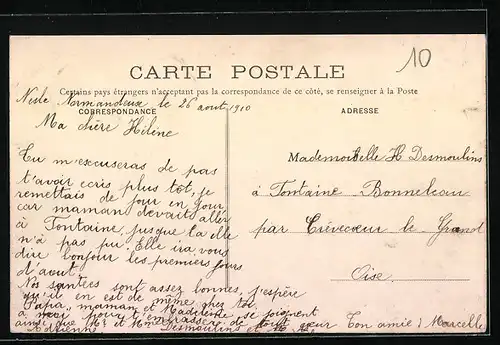 10
CARTE POSTALE
Certains pays étrangers n'acceptant pas la correspondance de ce côté, se renseigner à la Poste
CORRESPONDANCE
ADRESSE
Nesle Normandeuse le 26 aout 1910
Ma chère Hélène
Tu m'escuseras de pas
t'avoir ecris plus tôt, je
remettais de jour en jour
car maman devait aller
à Fontaine, jusque la elle
n'à pas pu. Elle ira vous
dire bonjour les premiers jours
d'aout.
Nos santées sont assez bonnes, j'espère
qu'il en est de même chez toi.
Papa, maman et Madeleine se joignent
à moi pour t'embrasser de tout cœur
ainsi que Mr et Mme Desmoulins et
Adrienne
Ton amie: Marcelle
Mademoiselle H Desmoulins
à Fontaine Bonneleau
par Crèvecœur le Grand
Oise.